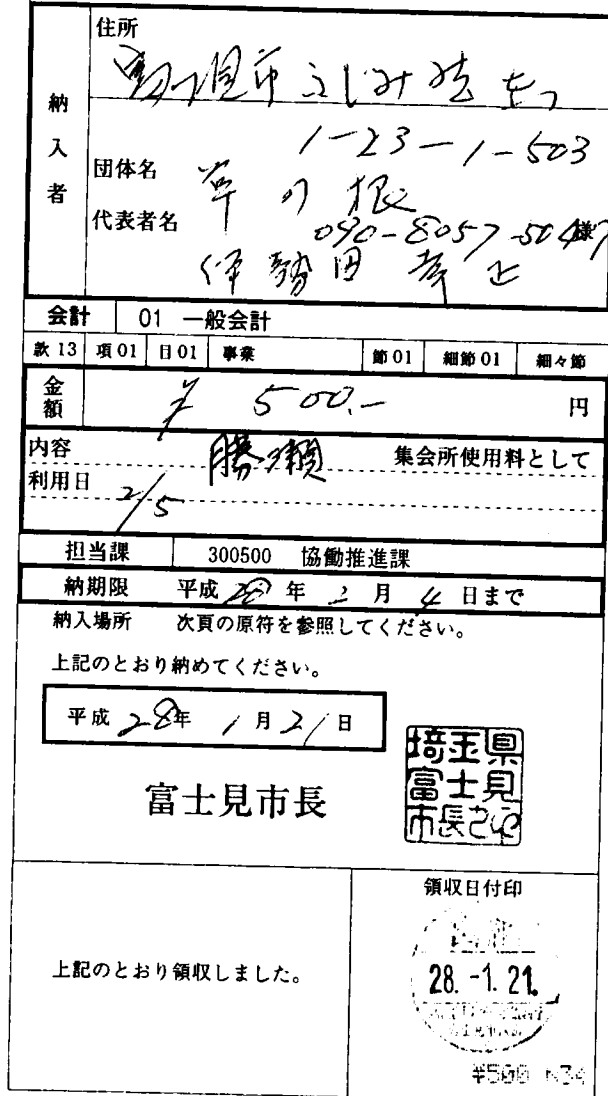 住所
富士見市ふじみ野東
1-23-1-503
納入者
団体名 草の根
代表者名
090-8057-5047 様
伊勢田 幸正
会計 01 一般会計
款 13 項 01 目 01 事業 節 01 細節 01 細々節
金額 ¥ 500.- 円
内容 勝瀬 集会所使用料として
利用日 2/5
担当課 300500 協働推進課
納期限 平成 28 年 2 月 4 日まで
納入場所 次頁の原符を参照してください。
上記のとおり納めてください。
平成 28年 1月 21日
富士見市長
埼玉県
富士見
市長之印
領収日付印
上記のとおり領収しました。
28.-1.21.
¥500 N34